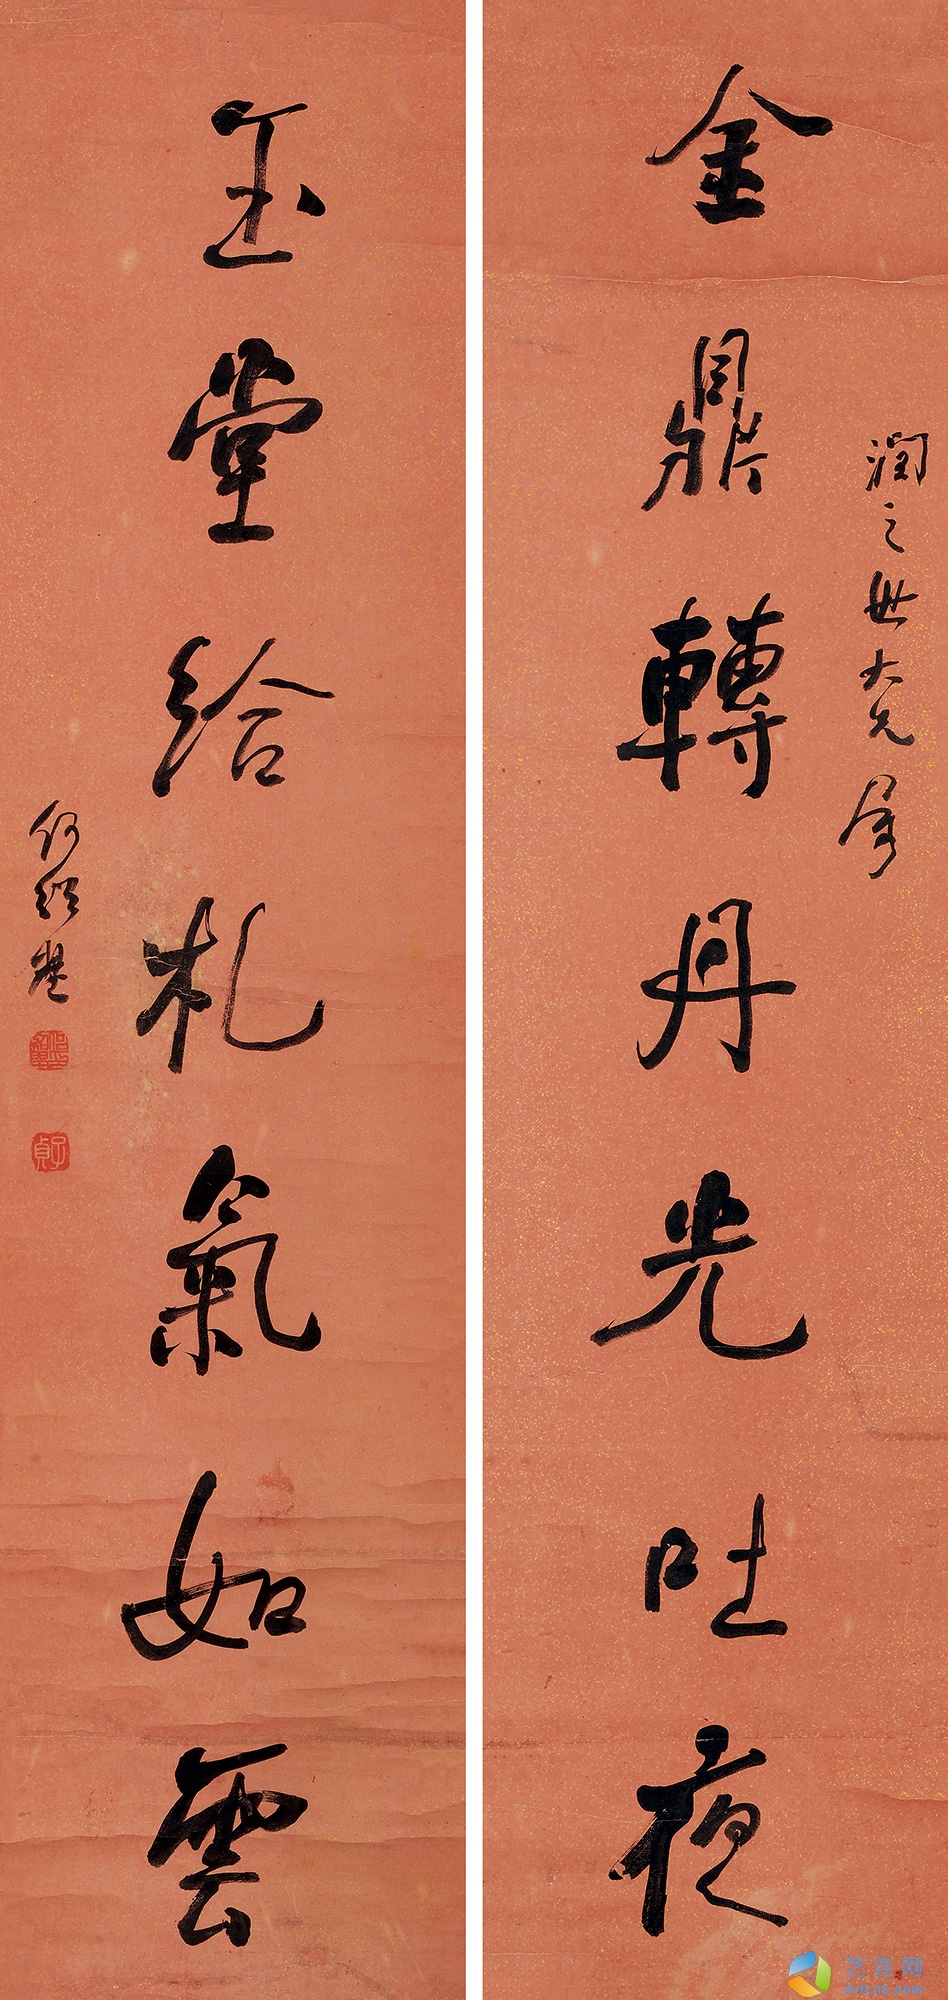 潤之世大兄屬
金鼎轉丹光吐夜
玉堂給札氣如雲
何紹基
子貞
艺连网
ArtLnk.com